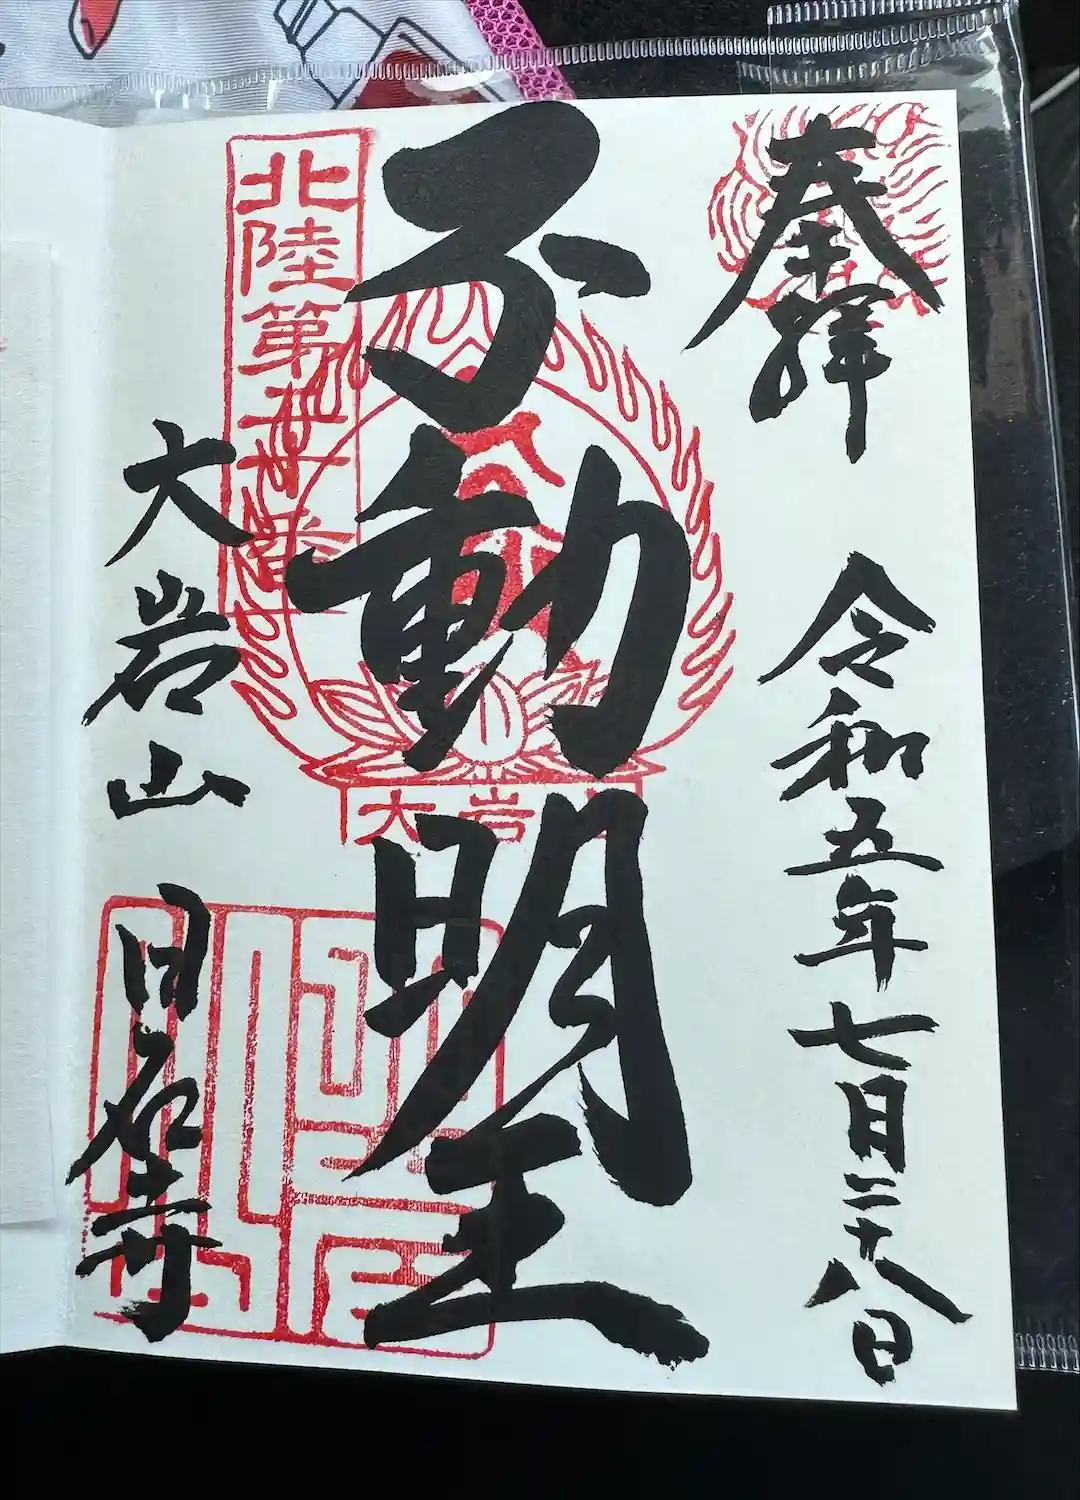 奉拝
令和五年七月二十八日
不動明王
北陸第廿一番
大岩山
大岩山 日石寺